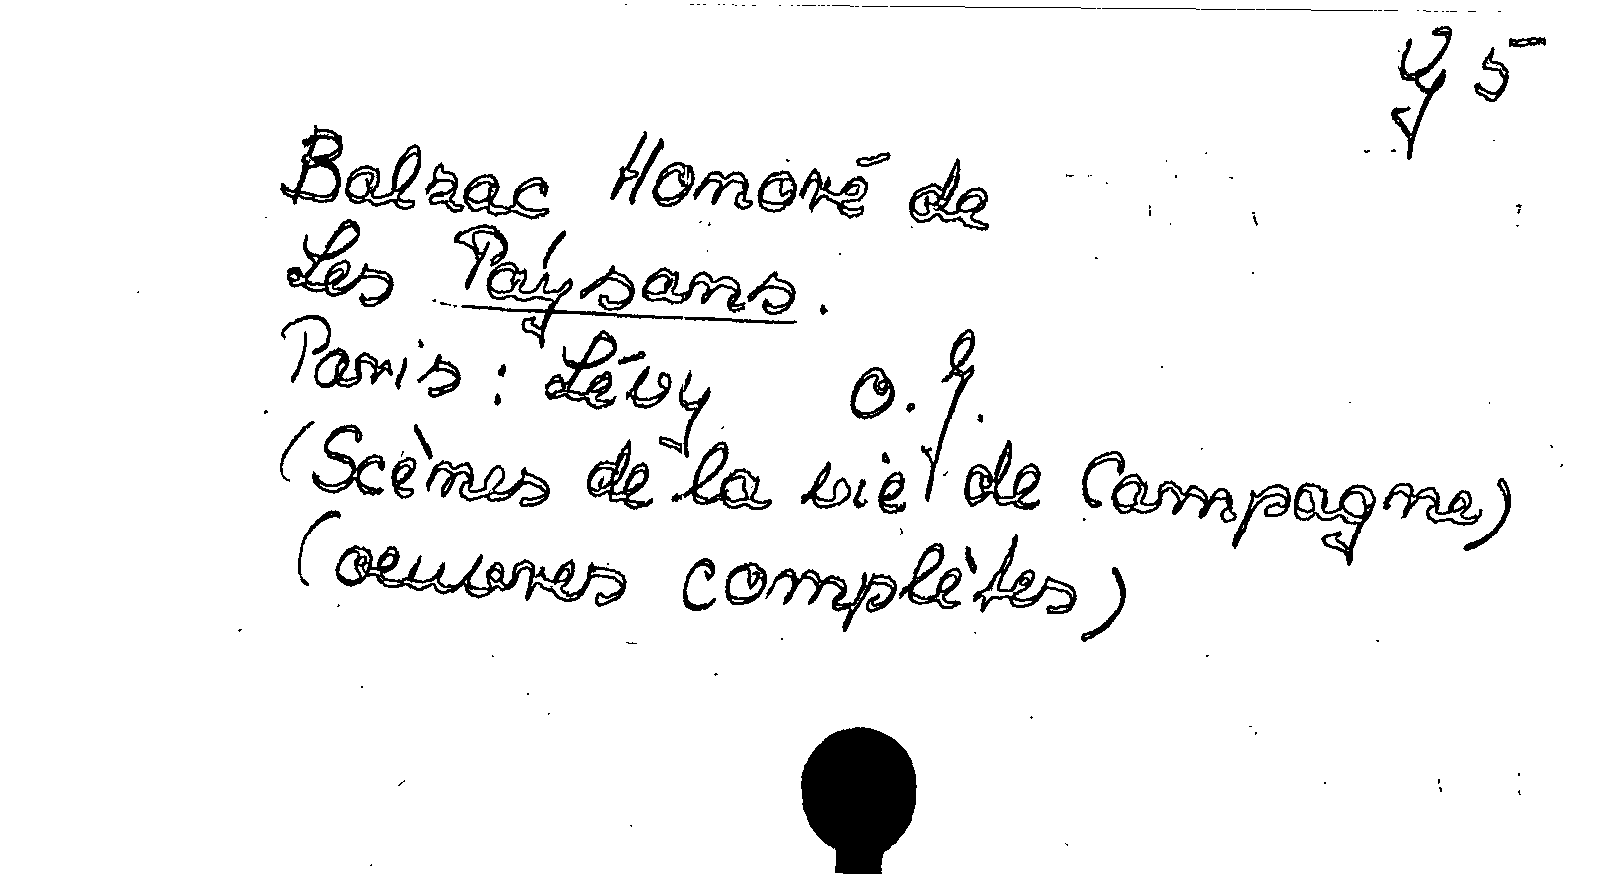 Y 5
Balzac Honoré de
Les Paysans.
Paris: Lévy o.J.
(Scènes de la vie de Campagne)
(oeuvres complètes)